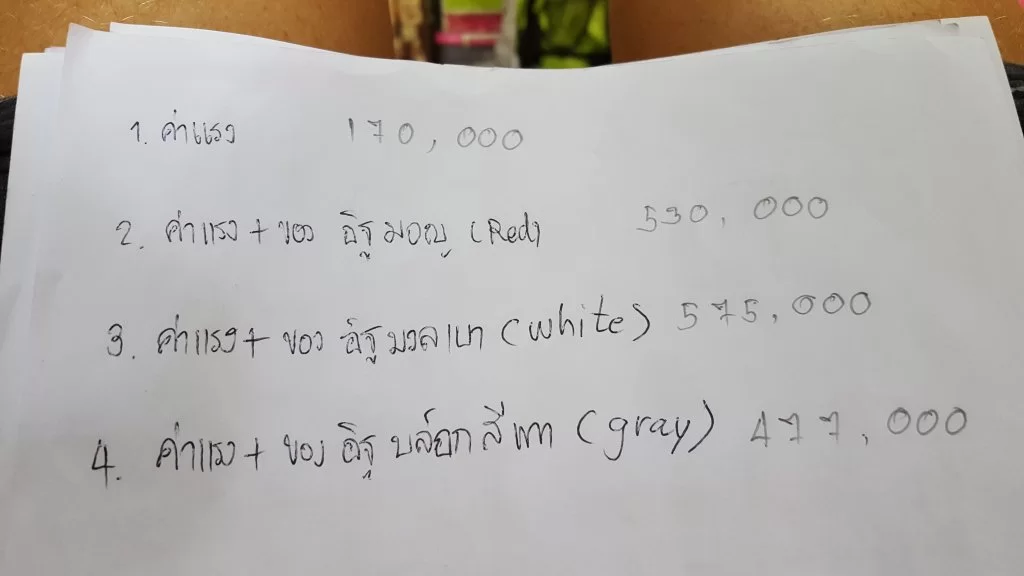 1. ค่าแรง 170,000
2. ค่าแรง + ของ อิฐมอญ (Red) 530,000
3. ค่าแรง + ของ อิฐมวลเบา (white) 575,000
4. ค่าแรง + ของ อิฐ บล๊อกสีเทา (gray) 477,000